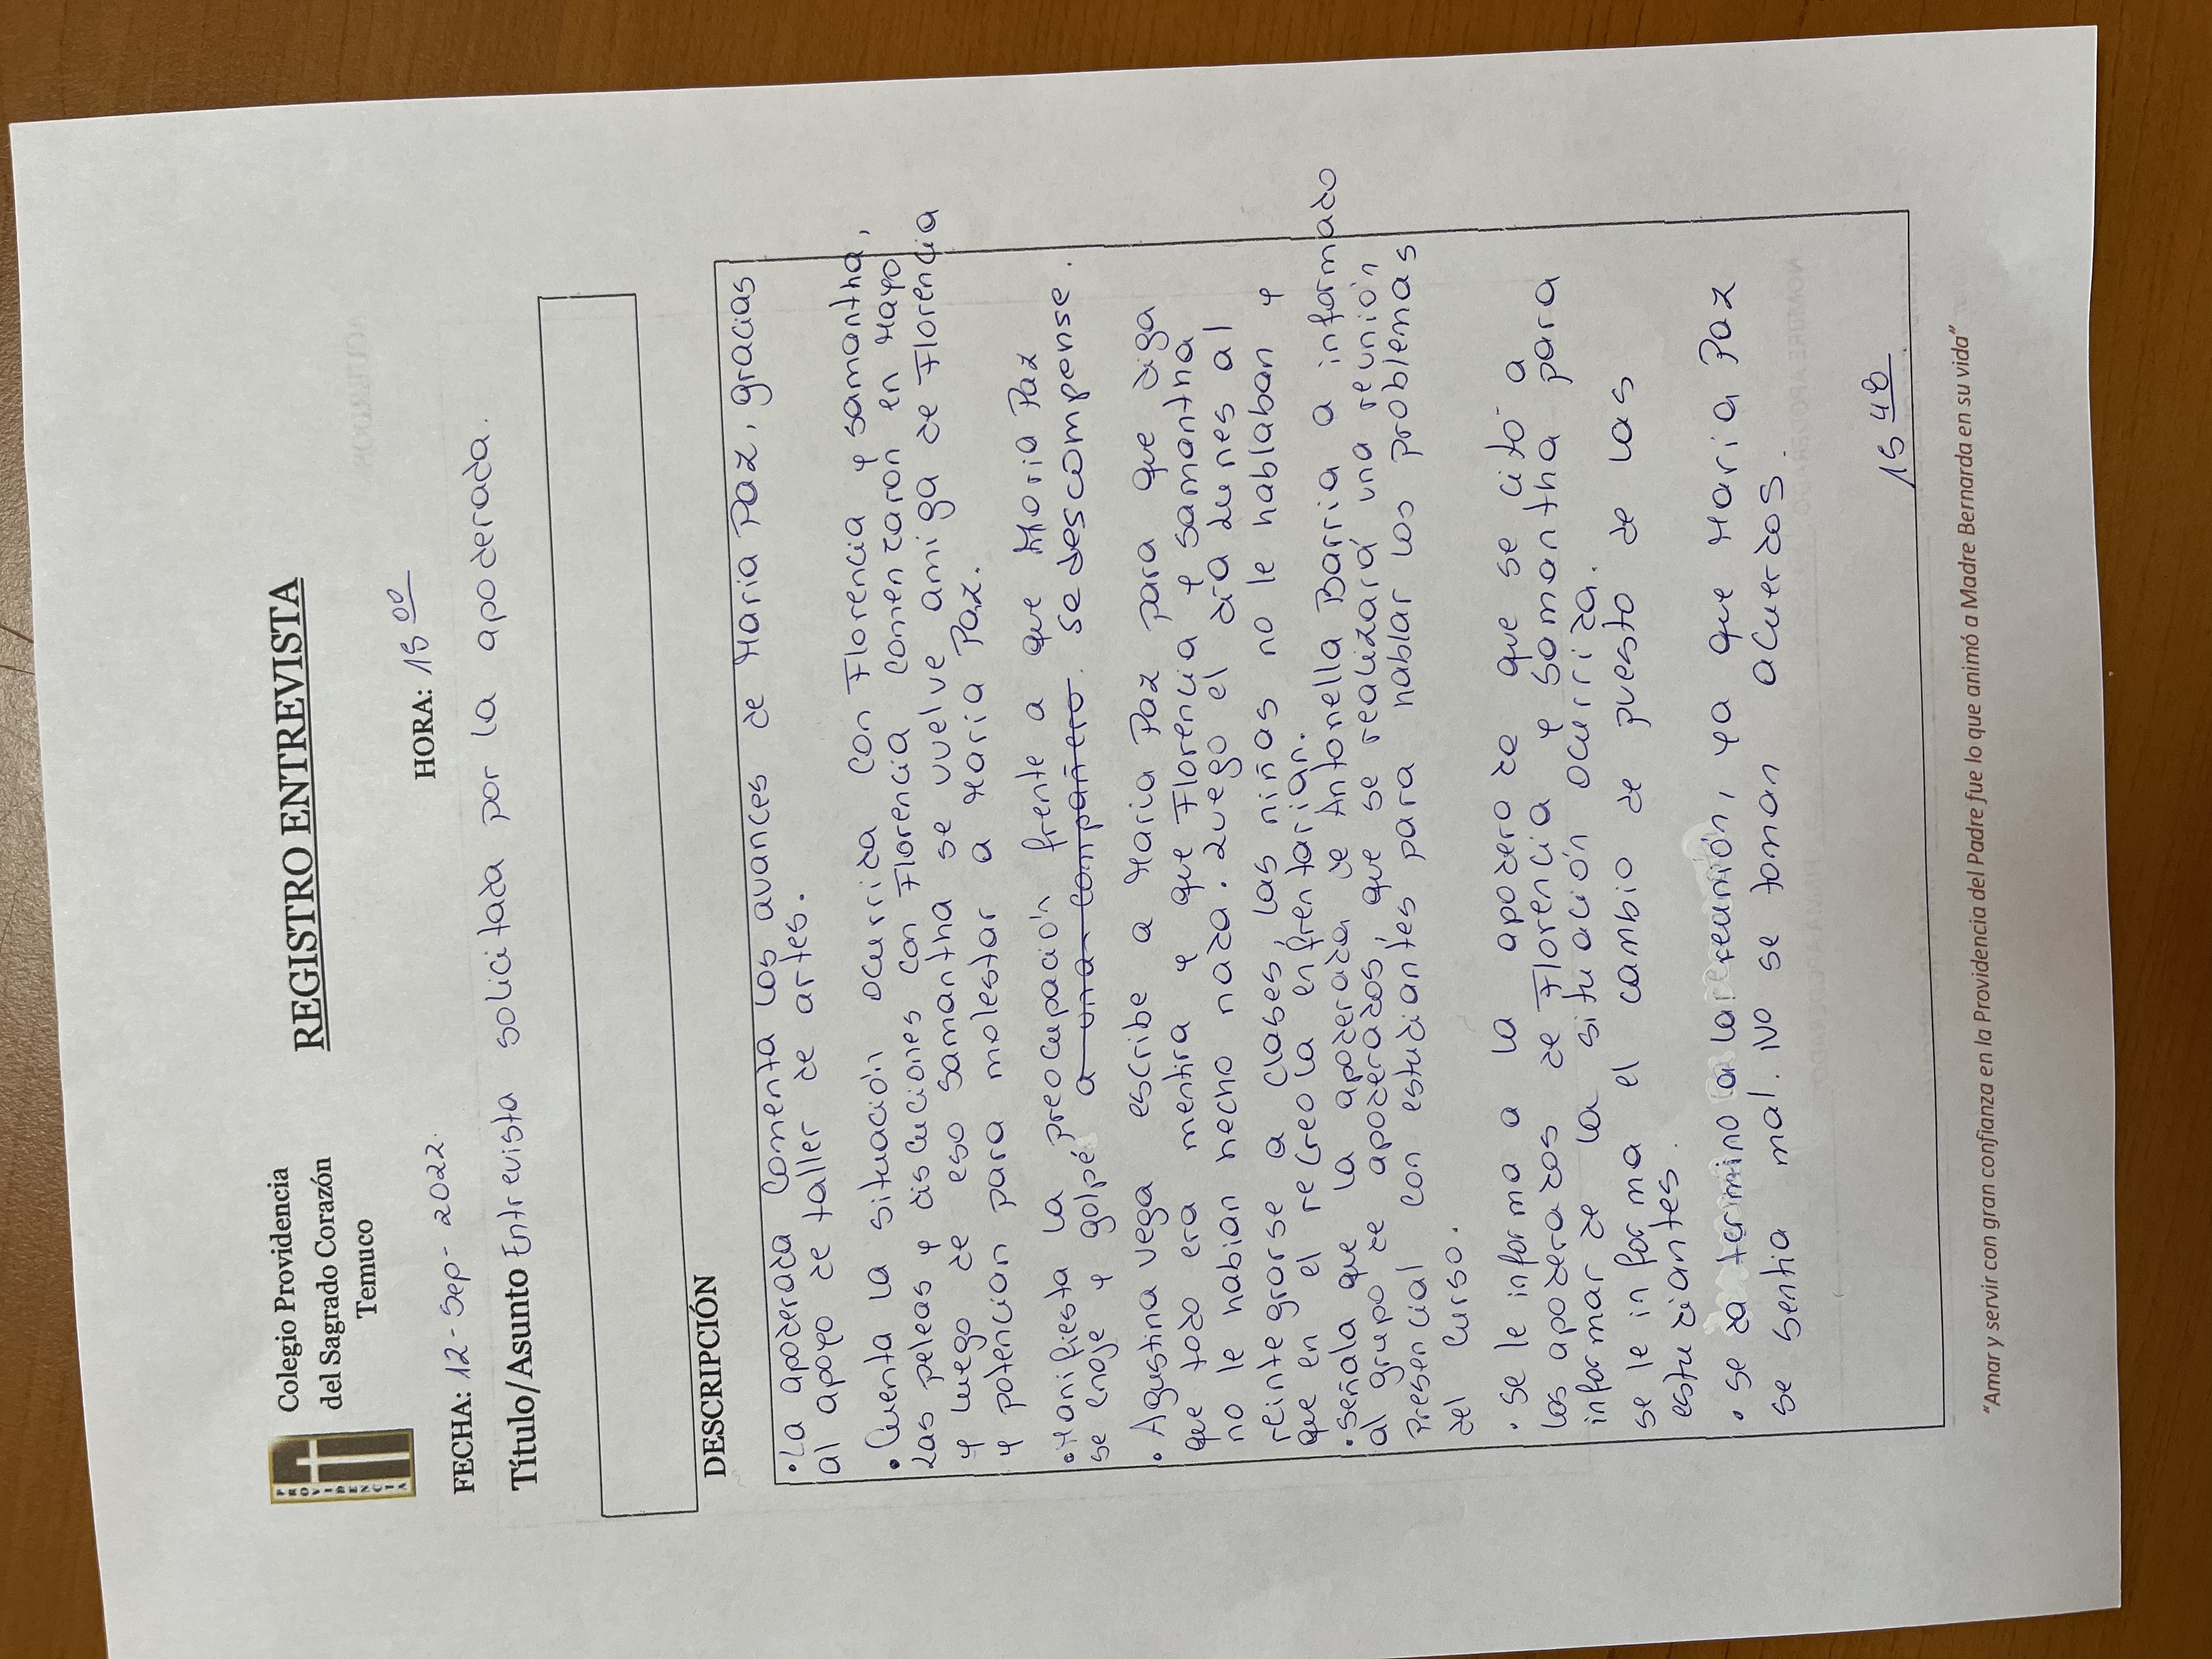 PROVIDENCIA
Colegio Providencia
del Sagrado Corazón
Temuco
REGISTRO ENTREVISTA
FECHA: 12-Sep-2022.
HORA: 15 00
Título/Asunto Entrevista solicitada por la apoderada.
DESCRIPCIÓN
• La apoderada comenta los avances de Maria Paz, gracias
al apoyo de taller de artes.
• Cuenta la situación ocurrida con Florencia y samantha,
Las peleas y discuciones con Florencia comenzaron en Mayo
y luego de eso samantha se vuelve amiga de Florencia
y potencian para molestar a Maria Paz.
• Manifiesta la preocupación frente a que Maria Paz
se enoje y golpé a una compañero. se descompense.
• Agustina vega escribe a Maria Paz para que diga
que todo era mentira y que Florencia y samantha
no le habian hecho nada. Luego el dia Lunes al
reintegrarse a clases, las niñas no le hablaban y
que en el recreo la enfrentarian.
• señala que la apoderada de Antonella Barria a informado
al grupo de apoderados, que se realizará una reunión
presencial con estudiantes para hablar los problemas
del curso.
• se le informa a la apoderada que se citó a
los apoderados de Florencia y Samantha para
informar de la situación ocurrida.
se le informa el cambio de puesto de las
estudiantes.
• se da termino a la reunión, ya que Maria Paz
se sentia mal. No se toman acuerdos.
15 48
"Amar y servir con gran confianza en la Providencia del Padre fue lo que animó a Madre Bernarda en su vida"